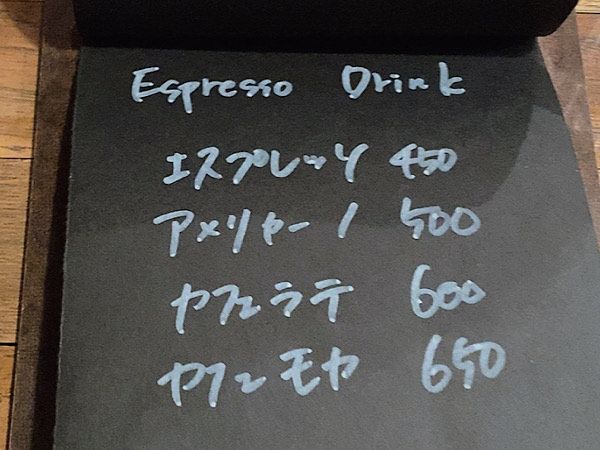 Espresso Drink
エスプレッソ 450
アメリカーノ 500
カフェラテ 600
カフェモカ 650